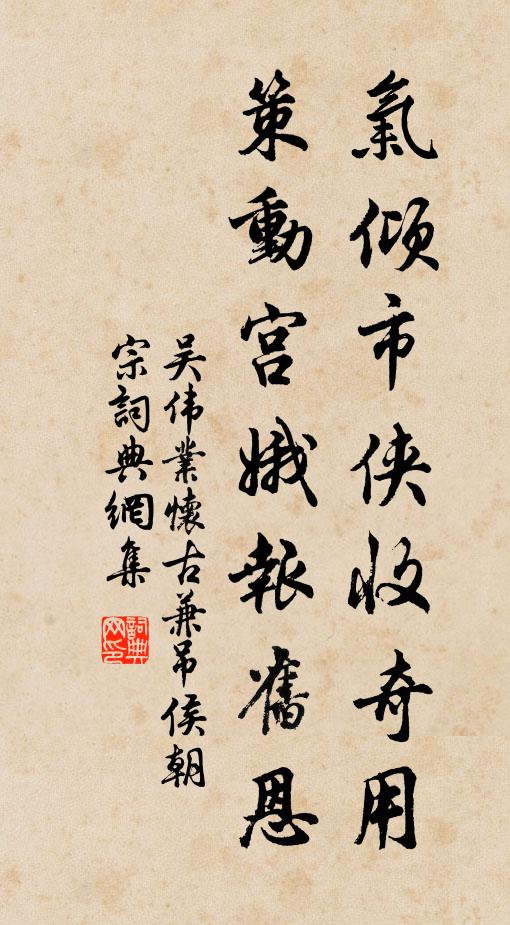 氣傾市俠收奇用
策動宮娥報舊恩
吴伟業懷古兼吊侯朝
宗詞典網集
詞典网印